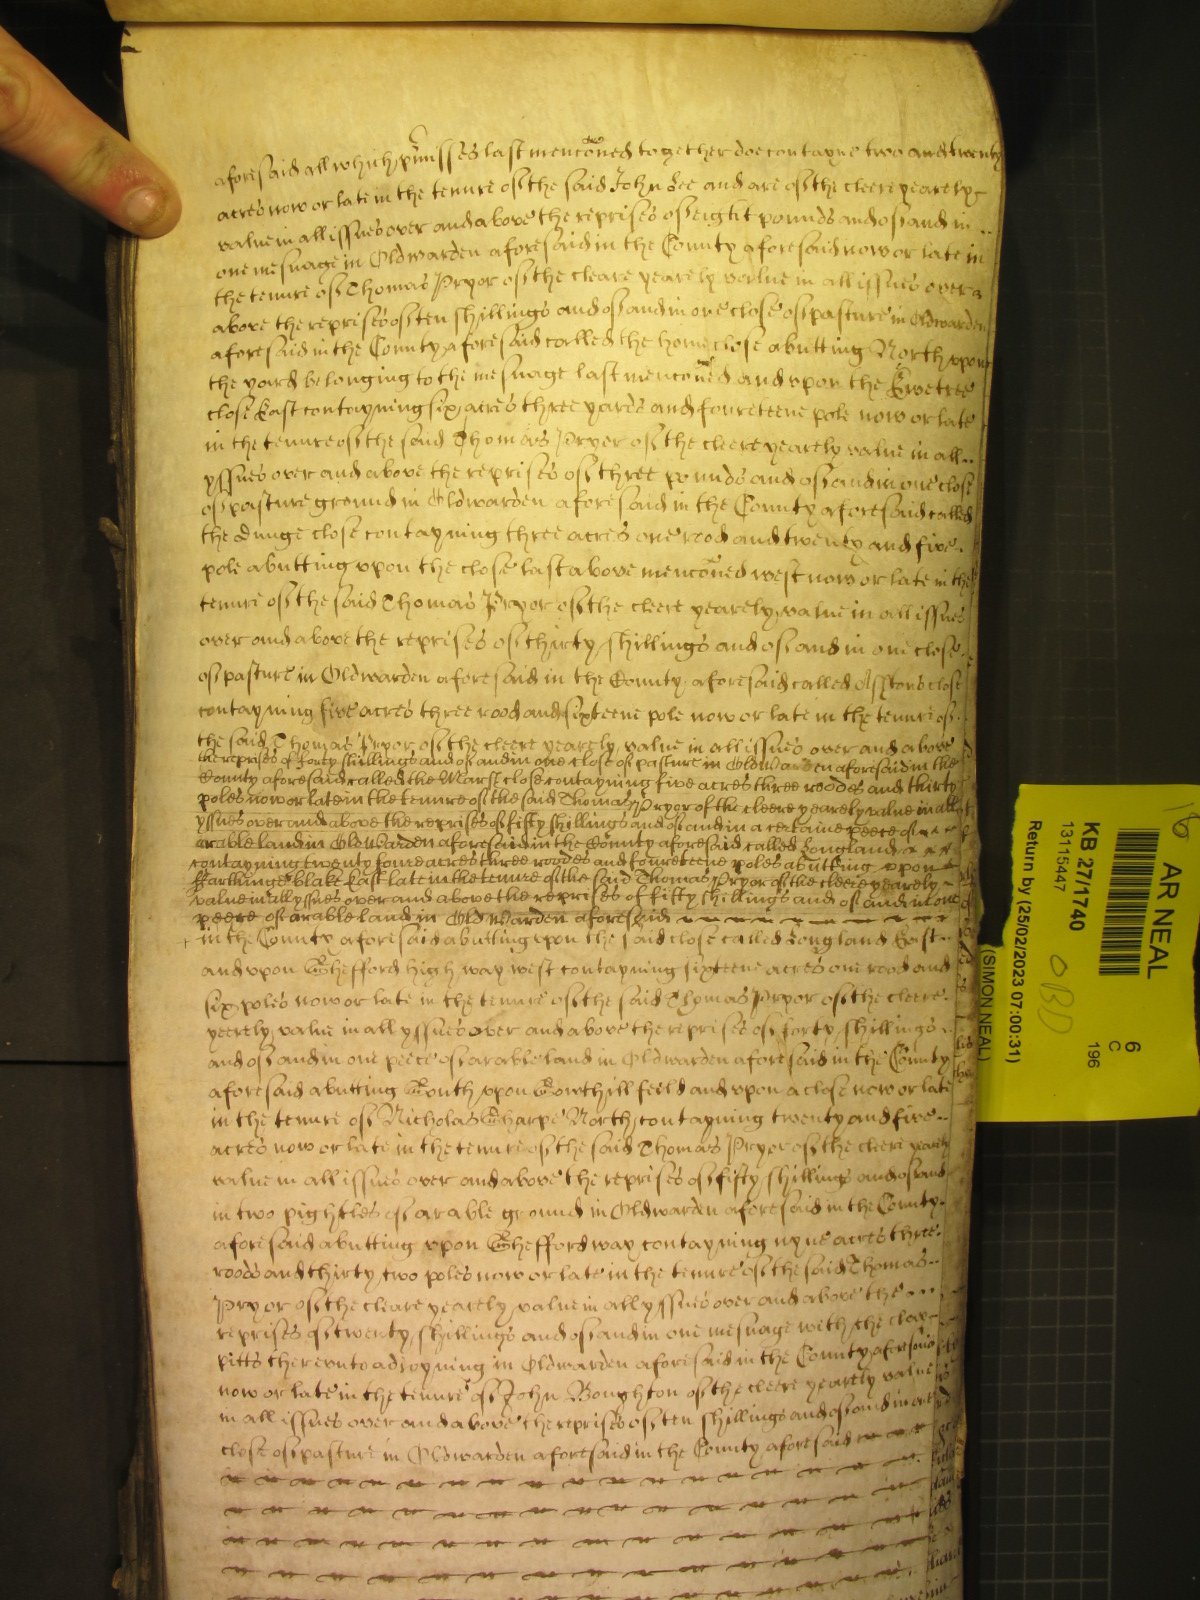 aforesaid all which p'misses last menc̃oned together doe contayne two and twenty
acres now or late in the tenure of the said John Lee and are of the cleere yearely
value in all issues over and above the reprises of eight pounds and of and in
one mesuage in Oldwarden aforesaid in the County aforesaid now or late in
the tenure of Thomas Pryor of the cleare yearely value in all issues over &
above the reprises of ten shillings and of and in one close of pasture in Oldwarden
aforesaid in the County aforesaid called the home close abutting North vpon
the yard belonging to the mesuage last menc̃oned and vpon the
close East contayning six acres three yards and foureteene pole now or late
in the tenure of the said Thomas Pryor of the cleere yearely value in all
yssues over and above the reprises of three pounds and of and in one close
of pasture ground in Oldwarden aforesaid in the County aforesaid called
the close contayning three acres one rood and twenty and five
pole abutting vpon the close last above menc̃oned west now or late in the
tenure of the said Thomas Pryor of the cleere yearely value in all issues
over and above the reprises of thirty shillings and of and in one close
of pasture in Oldwarden aforesaid in the County aforesaid called close
contayning five acres three rood and sixteene pole now or late in the tenure of
the said Thomas Pryor of the cleere yearely value in all issues over and above
the reprises of forty shillings and of and in one close of pasture in OldWarden aforesaid in the
County aforesaid called the Marst close contayning five acres three roodes and thirty
poles now or late in the tenure of the said Thomas Pryor of the cleere yearely value in all
yssues over and above the reprises of fifty shillings and of and in a certaine peece of
arable land in OldWarden aforesaid in the County aforesaid called Longland
contayning twenty foure acres three roodes and foureteene poles abutting vpon
East late in the tenure of the said Thomas Pryor of the cleere yearely
value in all yssues over and above the reprises of fifty shillings and of and in one
peece of arable land in OldWarden aforesaid
in the County aforesaid abutting vpon the said close called Longland East
and vpon Shefford high way west contayning sixteene acres one rood and
six poles now or late in the tenure of the said Thomas Pryor of the cleere
yeerely value in all yssues over and above the reprises of forty shillings
and of and in one peece of arable land in Oldwarden aforesaid in the County
aforesaid abutting South vpon Sowthill feild and vpon a close now or late
in the tenure of Nicholas Sharpe North contayning twenty and five
acres now or late in the tenure of the said Thomas Pryor of the cleere yearely
value in all issues over and above the reprises of fifty shillings and of and
in two pightles of arable ground in Oldwarden aforesaid in the County
aforesaid abutting vpon Shefford way contayning nyne acres three
roods and thirty two poles now or late in the tenure of the said Thomas
Pryor of the cleare yearely value in all yssues over and above the
reprises of twenty shillings and of and in one mesuage with the clay
pitts therevnto adjoyning in Oldwarden aforesaid in the County aforesaid
now or late in the tenure of John Boughton of the cleere yearely value
in all issues over and above the reprises of ten shillings and of and in one
close of pasture in Oldwarden aforesaid in the County aforesaid
AR NEAL
6
C
196
KB 27/1740
13115447
Return by (25/02/2023 07:00:31)
(SIMON NEAL)